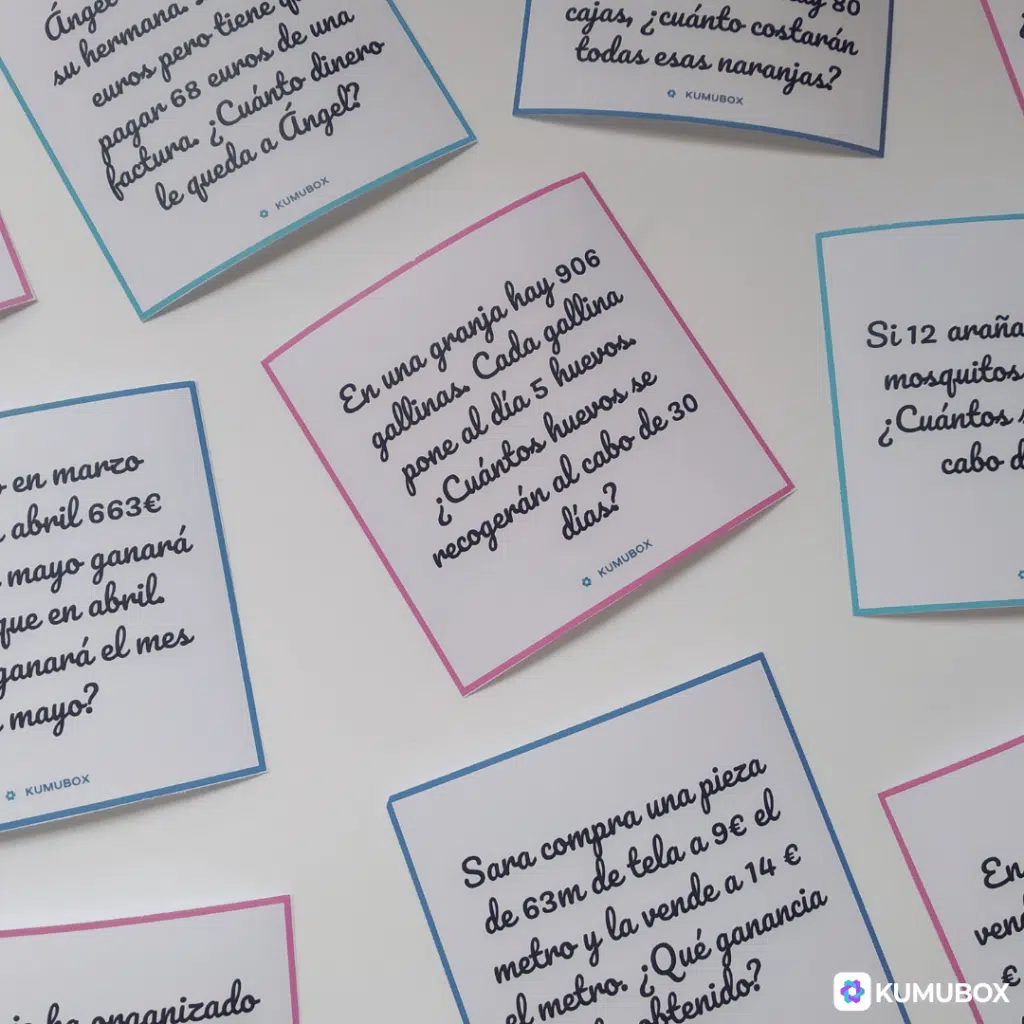 Ángel
su hermana.
euros pero tiene
pagar 68 euros de una
factura. ¿Cuánto dinero
le queda a Ángel?
KUMUBOX
80
cajas, ¿cuánto costarán
todas esas naranjas?
KUMUBOX
En una granja hay 906
gallinas. Cada gallina
pone al día 5 huevos.
¿Cuántos huevos se
recogerán al cabo de 30
días?
KUMUBOX
Si 12
mosquitos
¿Cuántos
cabo
en marzo
abril 663€
mayo ganará
que en abril.
ganará el mes
mayo?
KUMUBOX
Sara compra una pieza
de 63m de tela a 9€ el
metro y la vende a 14 €
el metro. ¿Qué ganancia
obtenido?
En
€
ha organizado
KUMUBOX